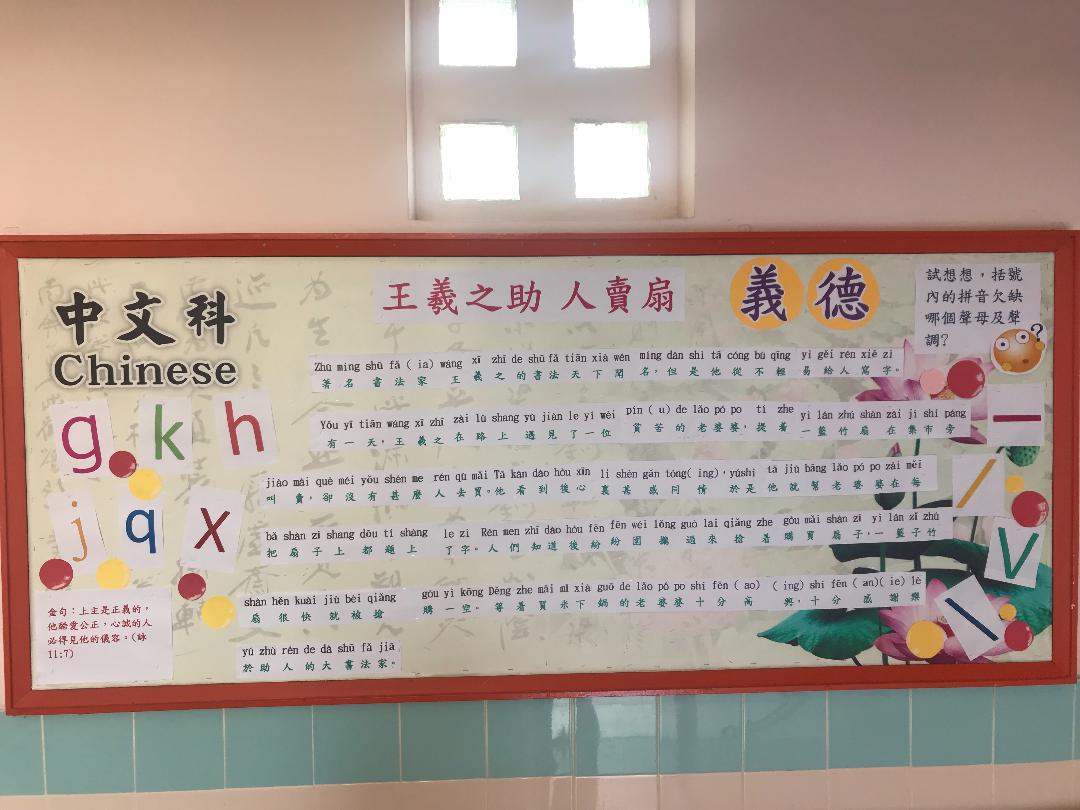 中文科
Chinese
王羲之助人賣扇
義德
試想想，括號
內的拼音欠缺
哪個聲母及聲
調？
?
Zhù míng shū fǎ ( ia) wáng xī zhī de shū fǎ tiān xià wén míng dàn shì tā cóng bú qīng yì gěi rén xiě zì
著名書法家王羲之的書法天下聞名，但是他從不輕易給人寫字。
Yǒu yī tiān wáng xī zhī zài lù shang yù jiàn le yí wèi pín ( u) de lǎo pó po tí zhe yì lán zhú shàn zài jí shì páng
有一天，王羲之在路上遇見了一位貧苦的老婆婆，提着一籃竹扇在集市旁
jiào mài què méi yǒu shén me rén qù mǎi Tā kàn dào hòu xīn lǐ shèn gǎn tóng( ing)，yúshì tā jiù bāng lǎo pó po zài měi
叫賣，卻沒有甚麼人去買。他看到後心裏甚感同情於是他就幫老婆婆在每
bǎ shàn zi shang dōu tí shàng le zì Rén men zhī dào hòu fēn fēn wéi lǒng guò lai qiǎng zhe gòu mǎi shàn zi yì lán zi zhú
把扇子上都題上了字。人們知道後紛紛圍攏過來搶着購買扇子，一籃子竹
shàn hěn kuài jiù bèi qiǎng gòu yì kōng Děng zhe mǎi mǐ xià guō de lǎo pó po shí fēn ( ao) ( ing) shí fēn ( an)( ie) lè
扇很快就被搶購一空。等着買米下鍋的老婆婆十分高興，十分感謝樂
yú zhù rén de dà shū fǎ jiā
於助人的大書法家。
g k h
j q x
金句：上主是正義的，
他酷愛公正，心誠的人
必得見他的儀容。(詠
11:7)